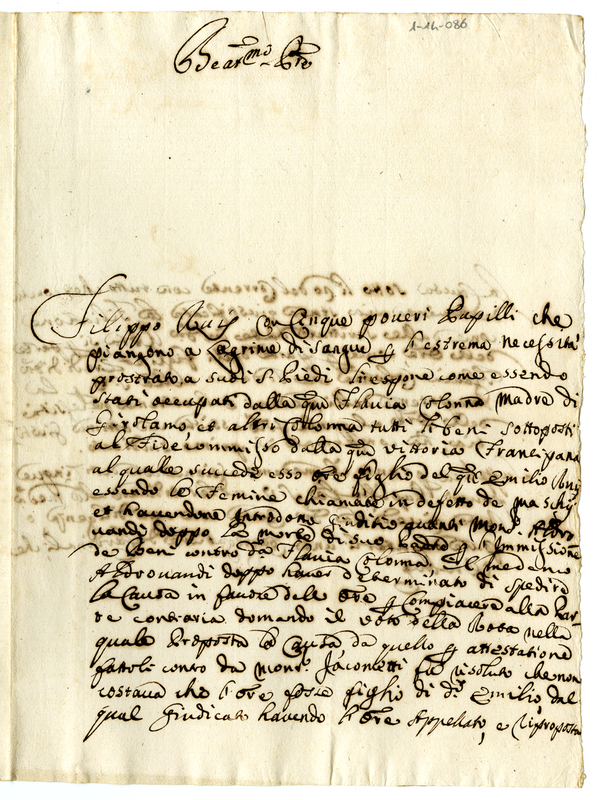 1-14-086
Beat.mo Pre
Filippo Ruis con Cinque poveri Pupilli che
piangono a Lagrime di sangue p l'estrema necessità
prostrato a suoi S. Piedi l'espone come essendo
stati occupati dalla qm Flavia Colonna Madre di
Girolamo et altri Colonna tutti li beni sottoposti
al Fideicommisso dalla qm Vittoria Frangipana
al quale succede esso Ore figlio del qm Emilio Ruis
essendo le Femine chiamate in defetto de maschij
et havendone Introdotto Giuditio avanti Mons.r Aldro
vandi doppo la morte di suo Padre p l'Immissione
de Beni contro da Flavia Colonna, Il medemo
Aldrovandi doppo haver determinato di spedire
la Causa in favore dell' Ore p Compiacere alla Par
te contraria domandò il voto della Rota nella
quale Proposta la Causa da quello p attestatione
fattoli contro da Mons.r Jacometti fù risoluto che non
costava che l'Ore fosse figlio di do Emilio, dal
qual Giudicato havendo l'Ore Appellato, e riproposta